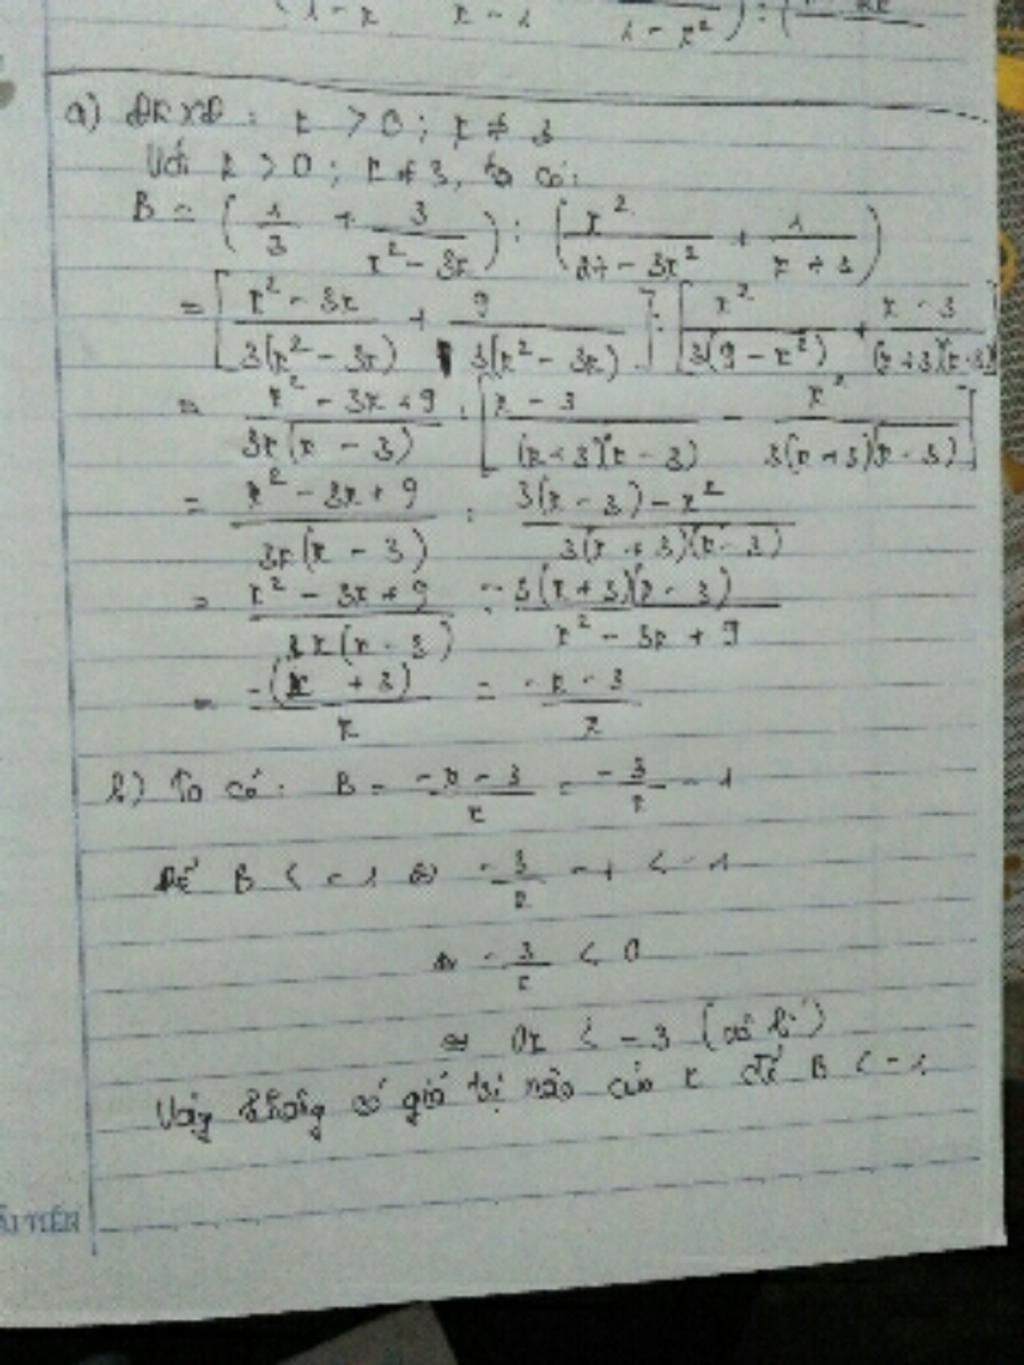 1 - x x - 1 1 - x²
a) ĐKXĐ: x > 0; x ≠ 3
Với x > 0; x ≠ 3, ta có:
B = (1/3 + 3/(x² - 3x)) : (x²/(27 - 3x²) + 1/(x + 3))
= [(x² - 3x)/(3(x² - 3x)) + 9/(3(x² - 3x))] : [x²/(3(9 - x²)) + (x - 3)/((x + 3)(x - 3))]
= (x² - 3x + 9)/(3x(x - 3)) : [(x - 3)/((x + 3)(x - 3)) - x²/(3(x + 3)(x - 3))]
= (x² - 3x + 9)/(3x(x - 3)) : (3(x - 3) - x²)/(3(x + 3)(x - 3))
= (x² - 3x + 9)/(3x(x - 3)) · (-3(x + 3)(x - 3))/(x² - 3x + 9)
= -(x + 3)/x = (-x - 3)/x
b) Ta có: B = (-x - 3)/x = -3/x - 1
Để B < -1 ⇔ -3/x - 1 < -1
⇔ -3/x < 0
⇔ 0x < -3 (vô lí)
Vậy không có giá trị nào của x để B < -1
TIẾN